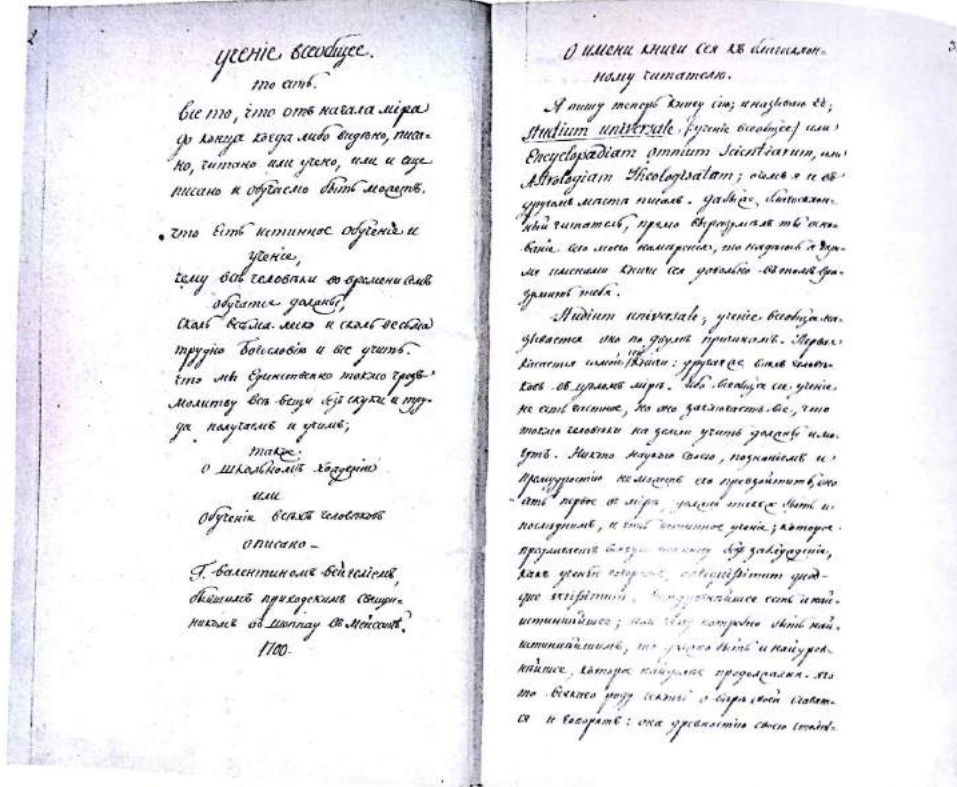 2
ученіе всеобщее.
то есть.
все то, что отъ начала міра
до конца когда либо видѣно, писа-
но, читано или учено, или и еще
писано и обучаемо быть можетъ.
что есть истинное обученіе и
ученіе,
чему всѣ человѣки во времени семъ
обучатся должны,
сколь весьма легко и сколь весьма
трудно Богословію и все учить.
что мы единственно токмо чрезъ
молитву всѣ вещи безъ скуки и тру-
да получаемъ и учимъ;
также.
о школьномъ хожденіи
или
обученіи всѣхъ человѣковъ
описано –
Г. валентиномъ вейгеліемъ,
бывшимъ приходскимъ священ-
никомъ въ Шоппау въ Мейссенѣ.
1700.
3.
О имени книги сея къ благосклон-
ному читателю.
Я пишу теперь книгу сію; и называю её;
studium universale. [ученіе всеобщее] или
Encyclopædiam omnium Scientiarum, или
Astrologiam Theologisatam; о чемъ я и въ
другомъ мѣстѣ писалъ. дабы же, благосклон-
ный читатель, прямо выразумѣлъ ты осно-
ваніе сего моего намѣренія, то надѣюсь я
мя именами книги сея довольно въ томъ вра-
зумить тебя.
Studium universale, ученіе всеобщее на-
зывается оно по двумъ причинамъ. Первая
касается самой сей книги: другая же всѣхъ человѣ-
ковъ въ цѣломъ мірѣ. ибо всеобщее сіе ученіе
не есть частное, но оно заключаетъ все, что
токмо человѣки на земли учить должны и мо-
гутъ. Никто наукою своею, познаніемъ и
премудростію не можетъ его превзойтить, оно
есть первое въ мірѣ, должно также быть и
последнимъ, и есть истинное ученіе; которое
предлагаетъ всякую истинну безъ заблужденія,
какъ ученые говорятъ, antiquissimum quod-
que verissimum. есть и най-
истиннѣйшее; или ему потребно быть най-
истиннѣйшимъ, то должно быть и
которое продолжалось. что
то всякаго роду секты о вѣрѣ своей хвалят-
ся и говорятъ: она древностію своею